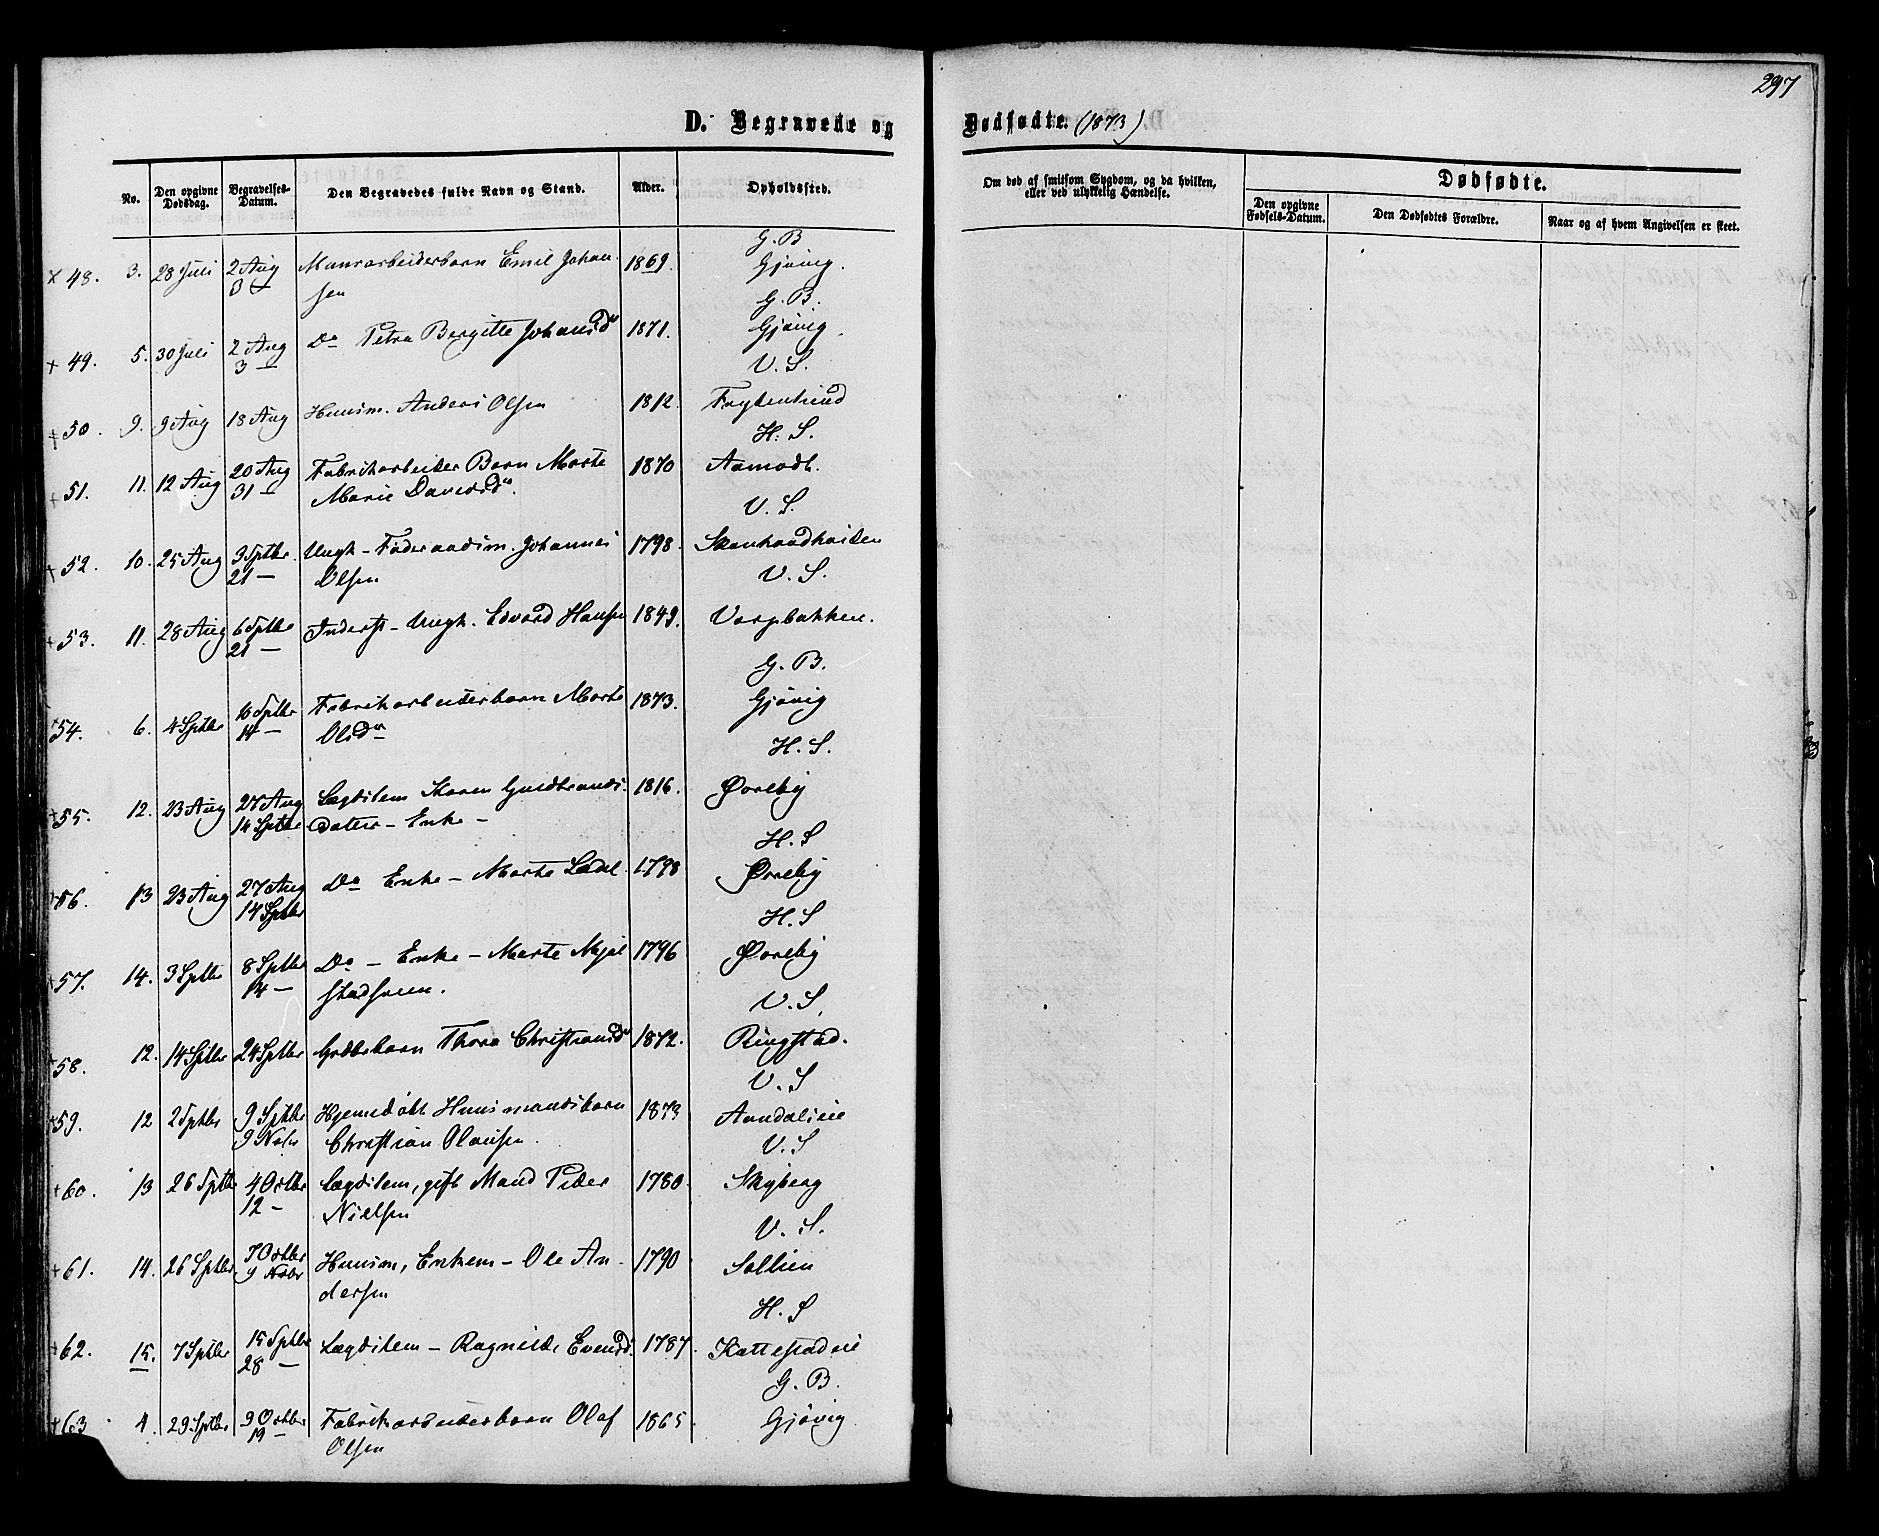 297
D. Begravede og Dødfødte. (1873)
No. Den opgivne Dødsdag. Begravelses-Datum. Den Begravedes fulde Navn og Stand. Alder. Opholdssted.
Om død af smitsom Sygdom, og da hvilken, eller ved ulykkelig Hændelse.
Dødfødte.
Den opgivne Fødsels-Datum. Den Dødfødtes Forældre. Naar og af hvem Angivelsen er skeet.
G. B
× 48. 3. 28 Juli 2 Aug Muurarbeiderbarn Emil Johan- 1869. Gjøvig.
3 — sen
G. B.
+ 49. 5. 30 Juli 2 Aug Do Petra Bergitte Johansdr 1871. Gjøvig.
3 —
V. S.
+ 50. 9. 9 Aug 18 Aug Huusm. Anders Olsen 1812.
H. S.
+ 51. 11. 12 Aug 20 Aug Fabrikarbeider Barn Marte 1870 Aamodt.
31 — Marie Davidsdr.
V. S.
+ 52. 10. 25 Aug 3 Sptbr. Ungk - Føderaadsm. Johannes 1798.
21 — Olsen
V. S.
+ 53. 11. 28 Aug 6 Sptbr Inderst - Ungk. Edvard Hansen 1849. Vargbakken.
21 —
G. B.
+ 54. 6. 4 Sptbr 10 Sptbr Fabrikarbeiderbarn Marte 1873. Gjøvig
14 — Olsdr
H. S.
+ 55. 12. 23 Aug 27 Aug Lægdslem Karen Guldbrands- 1816. Øvreby
14 Sptbr datter - Enke -
H. S
+ 56. 13 23 Aug 27 Aug Do Enke - Marte 1798 Øvreby
14 Sptbr
H. S
+ 57. 14. 3 Sptbr 8 Sptbr Do - Enke - Marte Mjøl- 1796 Øvreby
14 — stadsveen.
V. S.
+ 58. 12. 14 Sptbr 24 Sptbr Thora Christiansdr 1872. Ringstad.
V. S
+ 59. 12 2 Sptbr 9 Sptbr Hjemedøbt Huusmandsbarn 1873 Aandalseie
9 Nobr Christian Olausen.
V. S
+ 60. 13 26 Sptbr 4 Octbr Lægdslem, gift Mand Peder 1780. Skyberg
12 - Nielsen
V. S.
+ 61. 14. 26 Sptbr. 7 Octbr Huusm, Enkem - Ole An- 1790 Sollien
9 Nobr dersen
H. S
+ 62. 15. 7 Sptbr 15 Sptbr Lægdslem - Ragnilde Evensd. 1787. Kattestadeie
28 —
G. B.
+ 63 4. 29 Sptbr 9 Octbr Fabrikarbeiderbarn Olaf 1865 Gjøvig
19 — Olsen